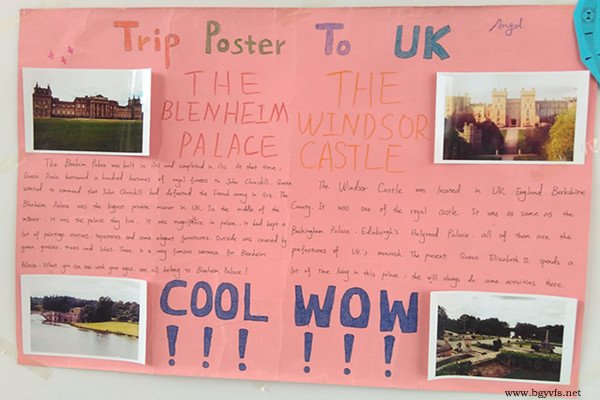 Trip Poster To UK
Angel
THE
BLENHEIM
PALACE
THE
WINDSOR
CASTLE
The Blenheim Palace was built in and completed in At that time,
Queen Anne bestowed a hundred hectares of royal forests to John Churchill. Queen
wanted to commend that John Churchill had defeated the French army in
Blenheim Palace was the biggest private manor in UK. In the middle of the
manor, it was the palace they live. It was magnificence in palace. It had kept a
lot of paintings, statues, tapestries and some elegant furnitures. Outside was covered by
green grasses, trees and lakes. There is a very famous sentence for Blenheim
Palace. What you can see with your eyes, are all belong to Blenheim Palace!
The Windsor Castle was located in UK England Berkshire
County. It was one of the royal castle. It was as same as the
Buckingham Palace, Edinburgh's Holyrood Palace, all of them are the
prefectures of UK's monarch. The present Queen Elizabeth II spends a
lot of time living in this palace. she will always do some activities there.
COOL
!!!
WOW
!!!
www.bgyvfs.net